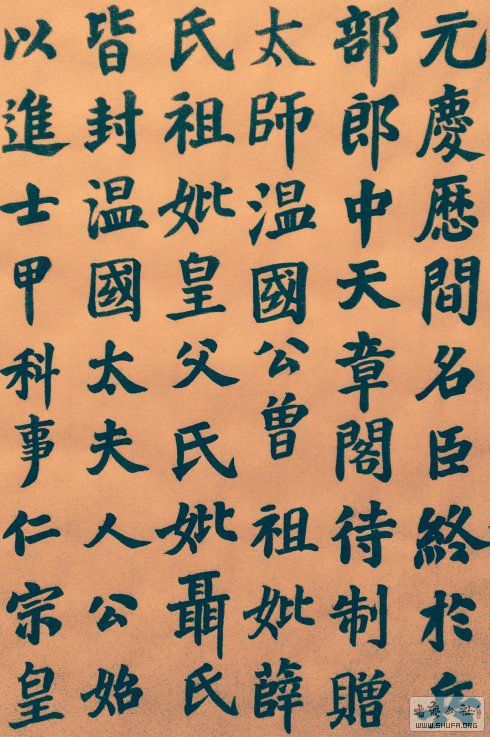 元慶厯間名臣終於
部郎中天章閣待制贈
太師温國公曾祖妣薛
氏祖妣皇父氏妣聶氏
皆封温國太夫人公始
以進士甲科事仁宗皇
WWW.SHUFA.ORG